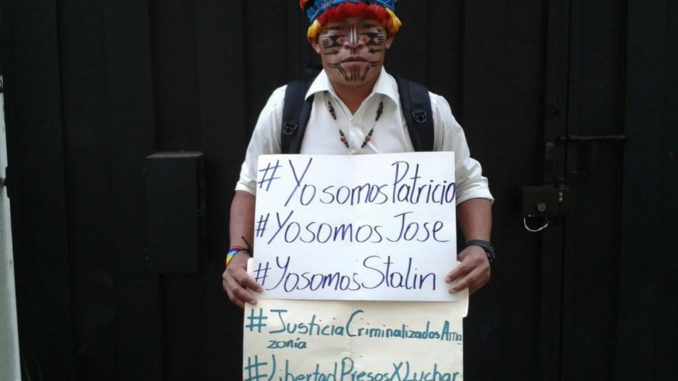 #YosomosPatricio
#YosomosJose
#YosomosStalin
#JusticiaCriminalizadosAma
zonía
#LibertadPresosXLuchar